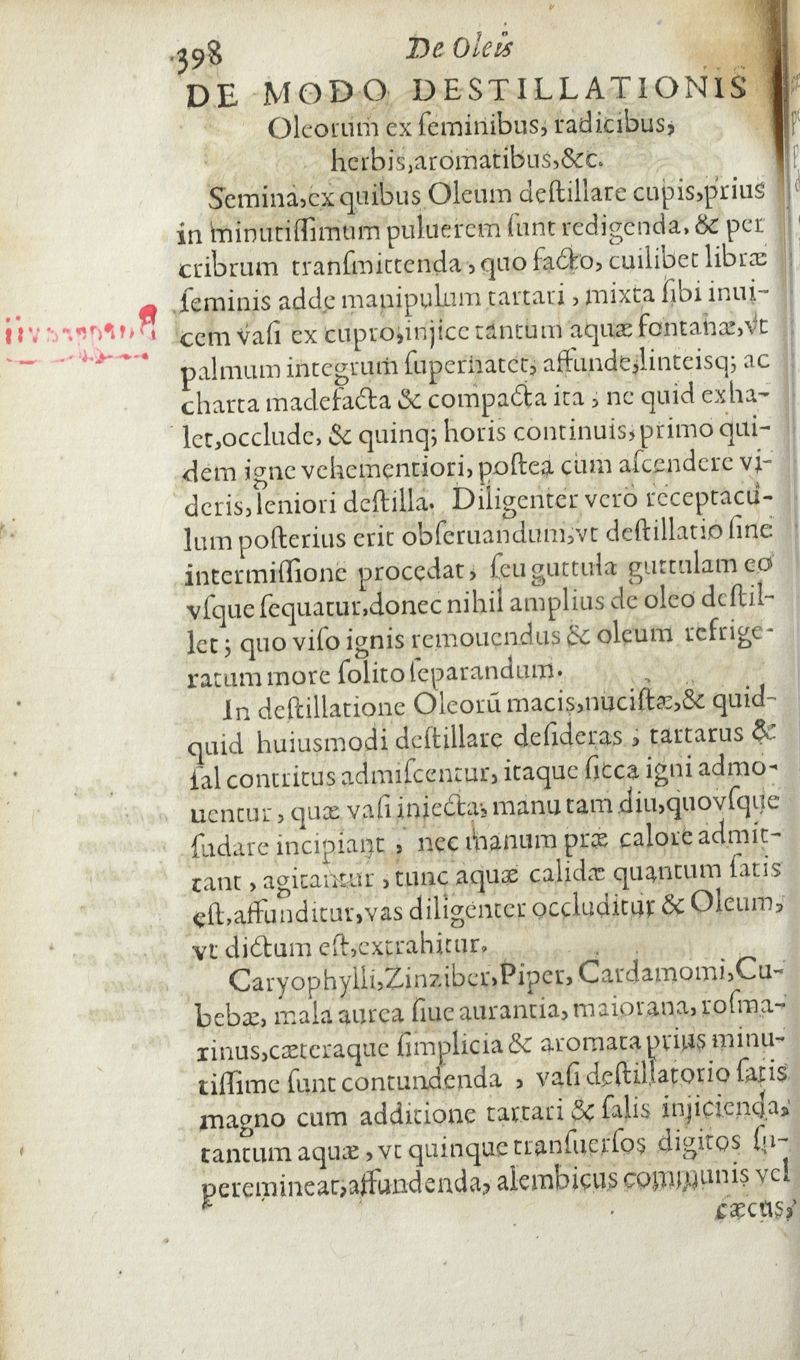 398 De Oleis
DE MODO DESTILLATIONIS
Oleorum ex ſeminibus, radicibus,
herbis,aromatibus,&c.
Semina,ex quibus Oleum deſtillare cupis,prius
in minutiſſimum puluerem ſunt redigenda, & per
cribrum tranſmittenda, quo facto, cuilibet libræ
ſeminis adde manipulum tartari, mixta ſibi inui-
cem vaſi ex cupro,injice tantum aquæ fontanæ,vt
palmum integrum ſupernatet, affunde,linteisq; ac
charta madefacta & compacta ita, ne quid exha-
let,occlude, & quinq; horis continuis,primo qui-
dem igne vehementiori, poſtea cùm aſcendere vi-
deris,leniori deſtilla. Diligenter verò receptacu-
lum poſterius erit obſeruandum,vt deſtillatio ſine
intermiſſione procedat, ſeu guttula guttulam eo
vſque ſequatur,donec nihil amplius de oleo deſtil-
let; quo viſo ignis remouendus & oleum refrige-
ratum more ſolito ſeparandum.
In deſtillatione Oleorū macis,nuciſtæ,& quid-
quid huiusmodi deſtillare deſideras, tartarus &
ſal contritus admiſcentur, itaque ſicca igni admo-
uentur, quæ vaſi injecta, manu tam diu,quovſque
ſudare incipiant, nec manum præ calore admit-
tant, agitantur, tunc aquæ calidæ quantum ſatis
eſt,affunditur,vas diligenter occluditur & Oleum,
vt dictum eſt,extrahitur.
Caryophylli,Zinziber,Piper, Cardamomi,Cu-
bebæ, mala aurea ſiue aurantia, maiorana, roſma-
rinus,cæteraque ſimplicia & aromata prius minu-
tiſſime ſunt contundenda, vaſi deſtillatorio ſatis
magno cum additione tartari & ſalis injicienda,
tantum aquæ, vt quinque tranſuerſos digitos ſu-
peremineat,affundenda, alembicus communis vel
cæcus,